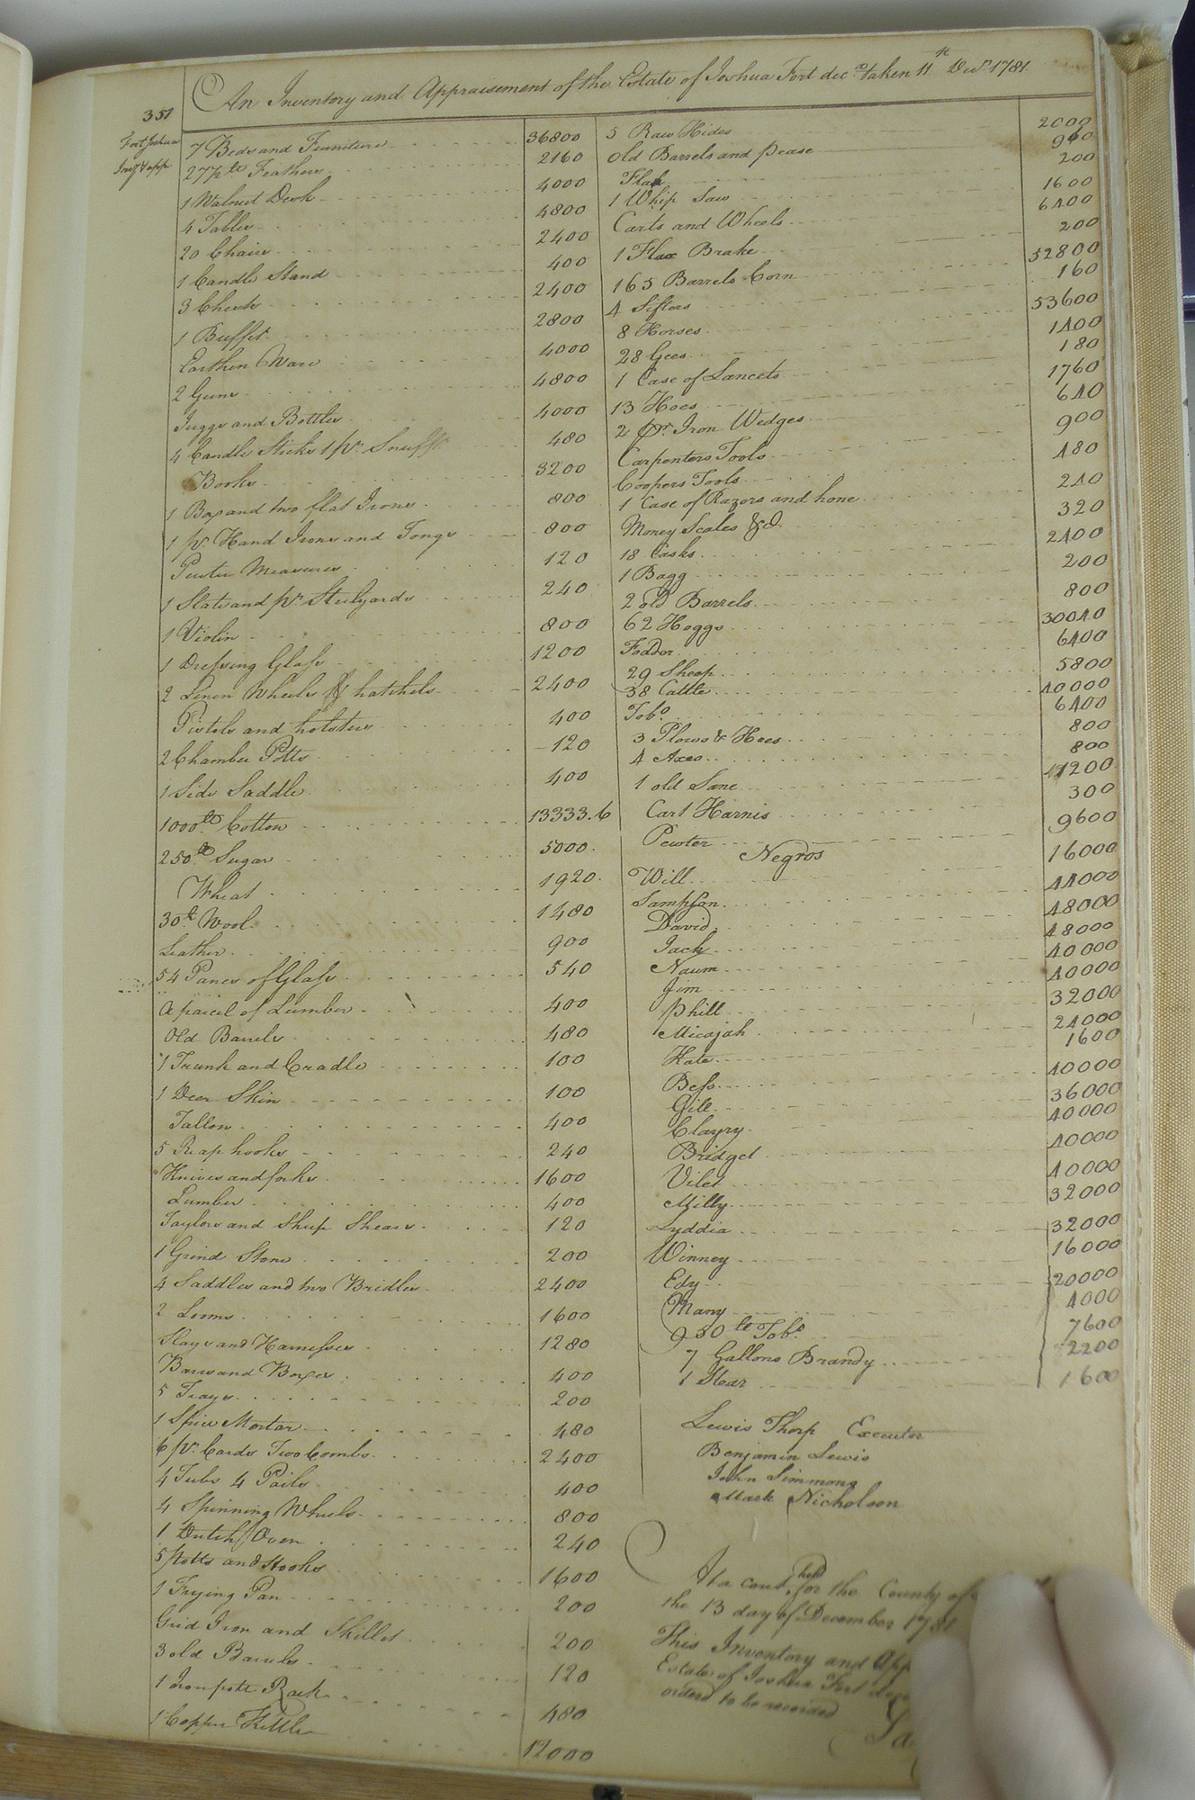 351
An Inventory and Appraisement of the Estate of Joshua Fort dec.d taken 11th Decr. 1781
Fort Joshua
Invy & app
7 Beds and Furniture 36800
27 lb Feathers 2160
1 Walnut Desk 4000
4 Tables 4800
20 Chairs 2400
1 Candle Stand 400
3 Chests 2400
1 Buffet 2800
Earthen Ware 4000
2 Guns 4800
Juggs and Bottles 4000
4 Candle Sticks 1 pr. Snuffs 480
Books 3200
1 Box and two flat Irons 800
1 pr. Hand Irons and Tongs 800
Pewter Measures 120
1 Slate and pr. Stilyards 240
1 Violin 800
1 Dressing Glass 1200
2 Linen Wheels & hatchels 2400
Pistols and holsters 400
2 Chamber Potts 120
1 Side Saddle 400
1000 lb Cotton 13333.6
250 lb Sugar 5000
Wheat 1920
30 lb Wool 1480
Leather 900
54 Panes of Glass 540
A parcel of Lumber 400
Old Barrels 480
1 Trunk and Cradle 100
1 Deer Skin 100
Tallow 400
5 Reap hooks 240
Knives and forks 1600
Lumber 400
Taylors and Sheep Shears 120
1 Grind Stone 200
4 Saddles and two Bridles 2400
2 Looms 1600
Slays and Harnesses 1280
Bars and Boxes 400
5 Trays 200
1 Spice Mortar 480
6 pr. Cards Two Combs 2400
4 Tubs 4 Pails 400
4 Spinning Wheels 800
1 Dutch Oven 240
5 Potts and Hooks 1600
1 Frying Pan 200
Grid Iron and Skillet 200
3 old Barrels 120
1 Iron Rack 480
1 Copper Kettle 12000
5 Raw Hides 2000
Old Barrels and pease 960
Flax 200
1 Whip Saw 1600
Carts and Wheels 6400
1 Flax Brake 200
165 Barrels Corn 52800
4 Sifters 160
8 Horses 53600
28 Gees 1400
1 Case of Lancets 180
13 Hoes 1760
2 pr. Iron Wedges 640
Carpenters Tools 900
Coopers Tools 480
1 Case of Razors and hone 240
Money Scales &c. 320
18 Casks 2400
1 Bagg 200
2 old Barrels 800
62 Hoggs 30040
Fodder 6400
29 Sheep 5800
38 Cattle 40000
Tobo. 6400
3 Plows & Hoes 800
4 Axes 800
1 old Sane 1200
Cart Harnis 300
Pewter 9600
Negros
Will 16000
Sampson 44000
David 48000
Jack 48000
Naum 40000
Jim 40000
Phill 32000
Micajah 24000
Kate 1600
Bess 40000
Gill 36000
Clayry 40000
Bridget 40000
Vilet 40000
Milly 32000
Lyddia 32000
Winney 16000
Edy 20000
Mary 4000
950 lb Tobo. 7600
7 Gallons Brandy 2200
1 Stear 1600
Lewis Thorp Executor
Benjamin Lewis
John Simmons
Mark Nicholson
At a court held for the County of
the 13 day of December 1781
This Inventory and App
Estate of Joshua Fort dec
orderd to be recorded